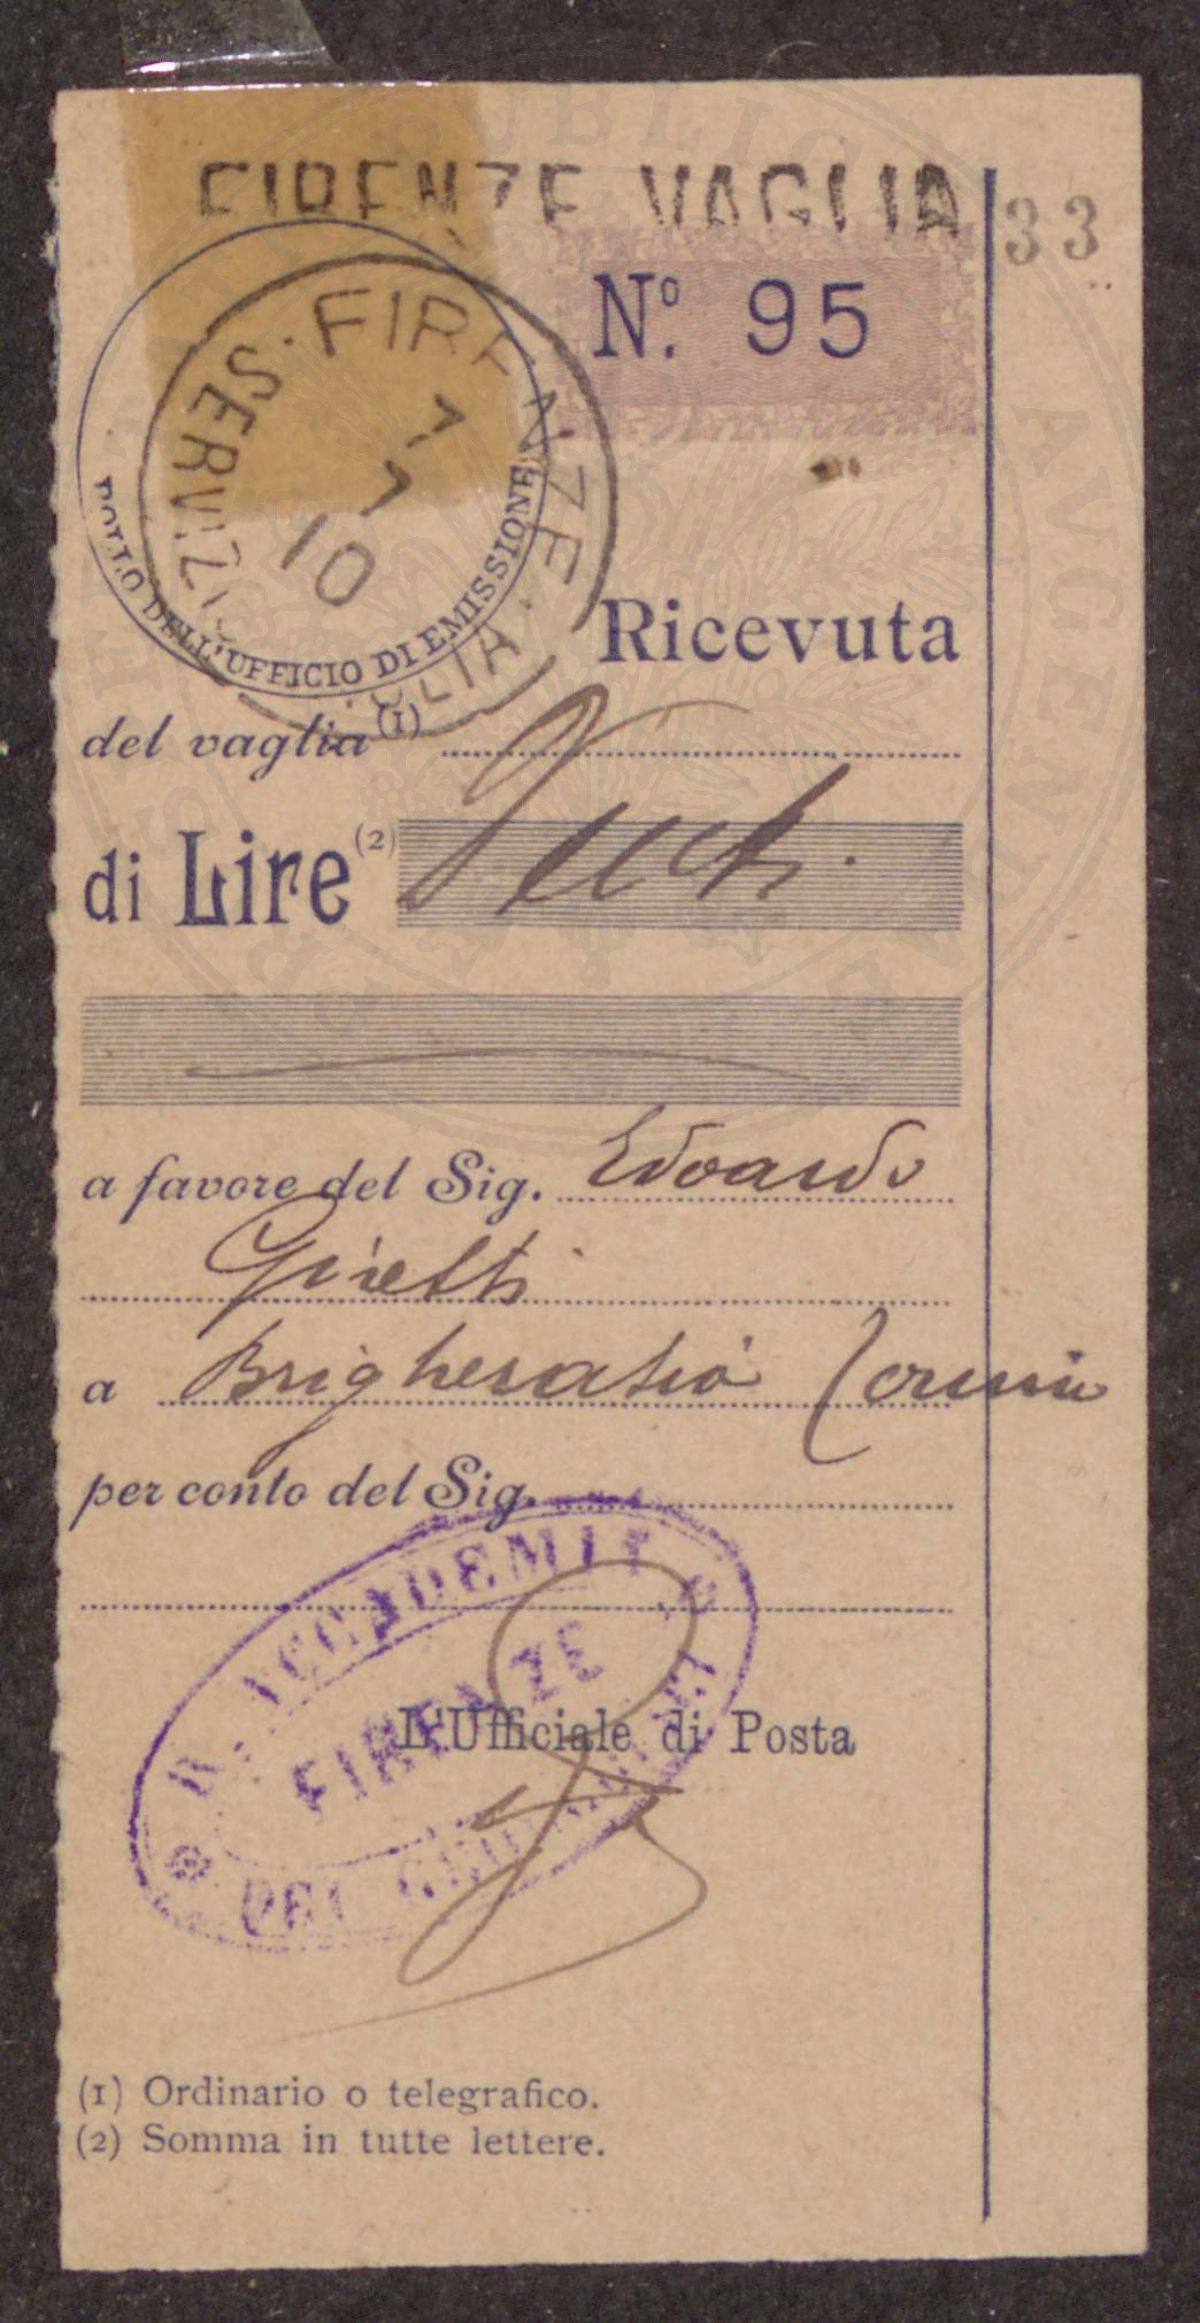 FIRENZE VAGLIA 33
Nº. 95
FIRENZE
SERVIZIO
VAGLIA
7
7
10
BOLLO DELL'UFFICIO DI EMISSIONE
Ricevuta
del vaglia (1)
di Lire (2)
a favore del Sig. Edoardo
Giretti
a Bricherasio (Torino
per conto del Sig.
R. ACCADEMIA
FIRENZE
DEI
L'Ufficiale di Posta
(1) Ordinario o telegrafico.
(2) Somma in tutte lettere.